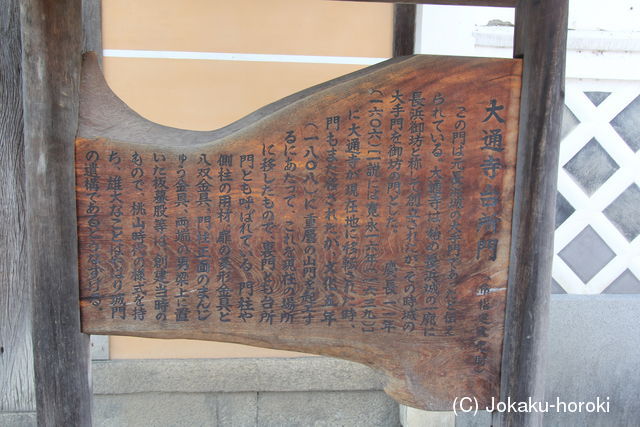 大通寺台所門
(市指定文化財)
この門は元長浜城の大手門であったと伝え
られている。大通寺は始め長浜城の一廓に
長浜御坊と称して創立されたが、その時城の
大手門を御坊の門とした。慶長十一年
(一六〇六)一説には寛永十六年(一六三九)
に大通寺が現在地に移築された時、
門もまた移されたが、文化五年
(一八〇八)に重層の山門を起工す
るにあたって、これを現在の場所
に移したもので、裏門とも台所
門とも呼ばれている。門柱や
側柱の用材、扉の矢形金具と
八双金具、門柱正面のまんじ
ゅう金具、両端の男梁上に置
いた板蟇股等は、創建当時の
もので、桃山時代の様式を持
ち、雄大なことはやはり城門
の遺構であることをうなずける。
(C) Jokaku-horoki